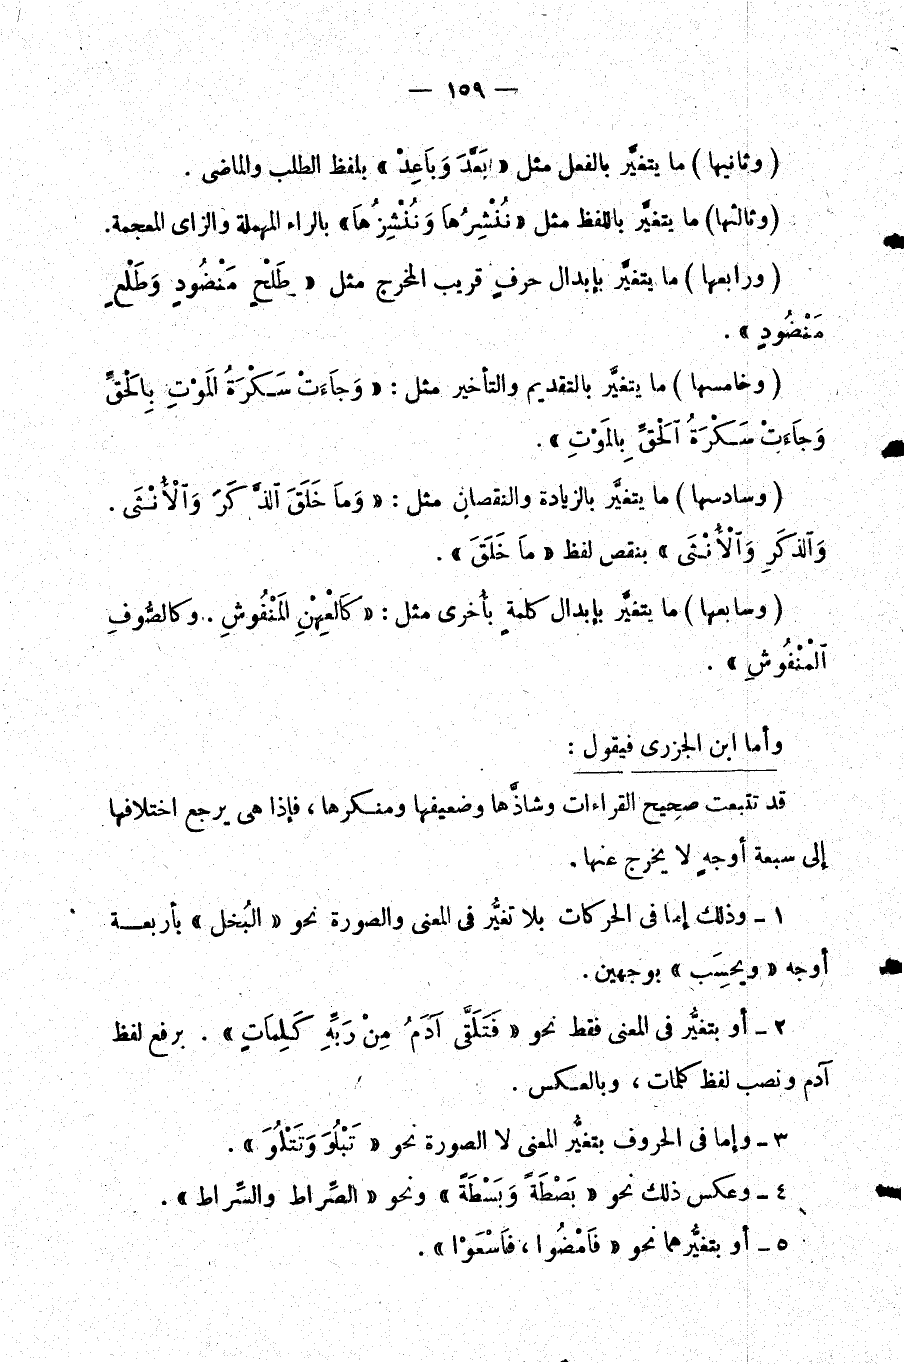 — ١٥٩ —
( وثانيها ) ما يتغيَّر بالفعل مثل « بَعَّدَ وَبَاَعِدْ » بلفظ الطلب والماضى .
(وثالثها) ما يتغيَّر باللفظ مثل « نُنْشِرُهاَ وَنُنْشِزُهاَ» بالراء المهملة والزاى المعجمة.
( ورابعها ) ما يتغيَّر بإبدال حرفٍ قريب المخرج مثل « طَلْحٍ مَنْضُودٍ وَطَلْعٍ
مَنْضُودٍ » .
( وخامسها ) ما يتغيَّر بالتقديم والتأخير مثل : « وَجاَءَتْ سَكْرَةُ الَموْتِ بِالَحْقِّ
وَجاَءَتْ سَكْرَةُ ٱلَحْقِّ بِالَموْتِ » .
( وسادسها ) ما يتغيَّر بالزيادة والنقصان مثل : « وَماَ خَلَقَ ٱلذَّكَرَ وَٱلْأُنْثَى .
وَٱلذكَرِ وَٱلْأُنْثَى » بنقص لفظ « ماَ خَلَقَ » .
( وسابعها ) ما يتغيَّر بإبدال كلمةٍ بأخرى مثل : « كَالْعِهْنِ الَمنْفُوشِ . وكالصُّوفِ
ٱلْمَنْفُوشِ » .
وأما ابن الجزرى فيقول :
قد تتبعت صحِيح القراءات وشاذَّها وضعيفها ومنكرها ، فإذا هى يرجع اختلافها
إلى سبعة أوجهٍ لا يخرج عنها .
١ – وذلك إما فى الحركات بلا تغيُّر فى المعنى والصورة نحو « البُخل » بأربعة
أوجه « ويحسِبَ » بوجهين .
٢ – أو بتغيُّر فى المعنى فقط نحو « فَتَلَقَّى آدَمُ مِنْ رَبِّهِ كَلِماَتٍ » . برفع لفظ
آدم ونصب لفظ كلمات ، وبالعكس .
٣ – وإما فى الحروف بتغيُّر المعنى لا الصورة نحو « تَبْلُوَ وَتَتْلُوَ » .
٤ – وعكس ذلك نحو « بَصْطَةً وَبَسْطَةً » ونحو « الصِّراط والسِّراط » .
٥ – أو بتغيُّرهما نحو « فَامْضُوا ، فاَسْعَوْا » .